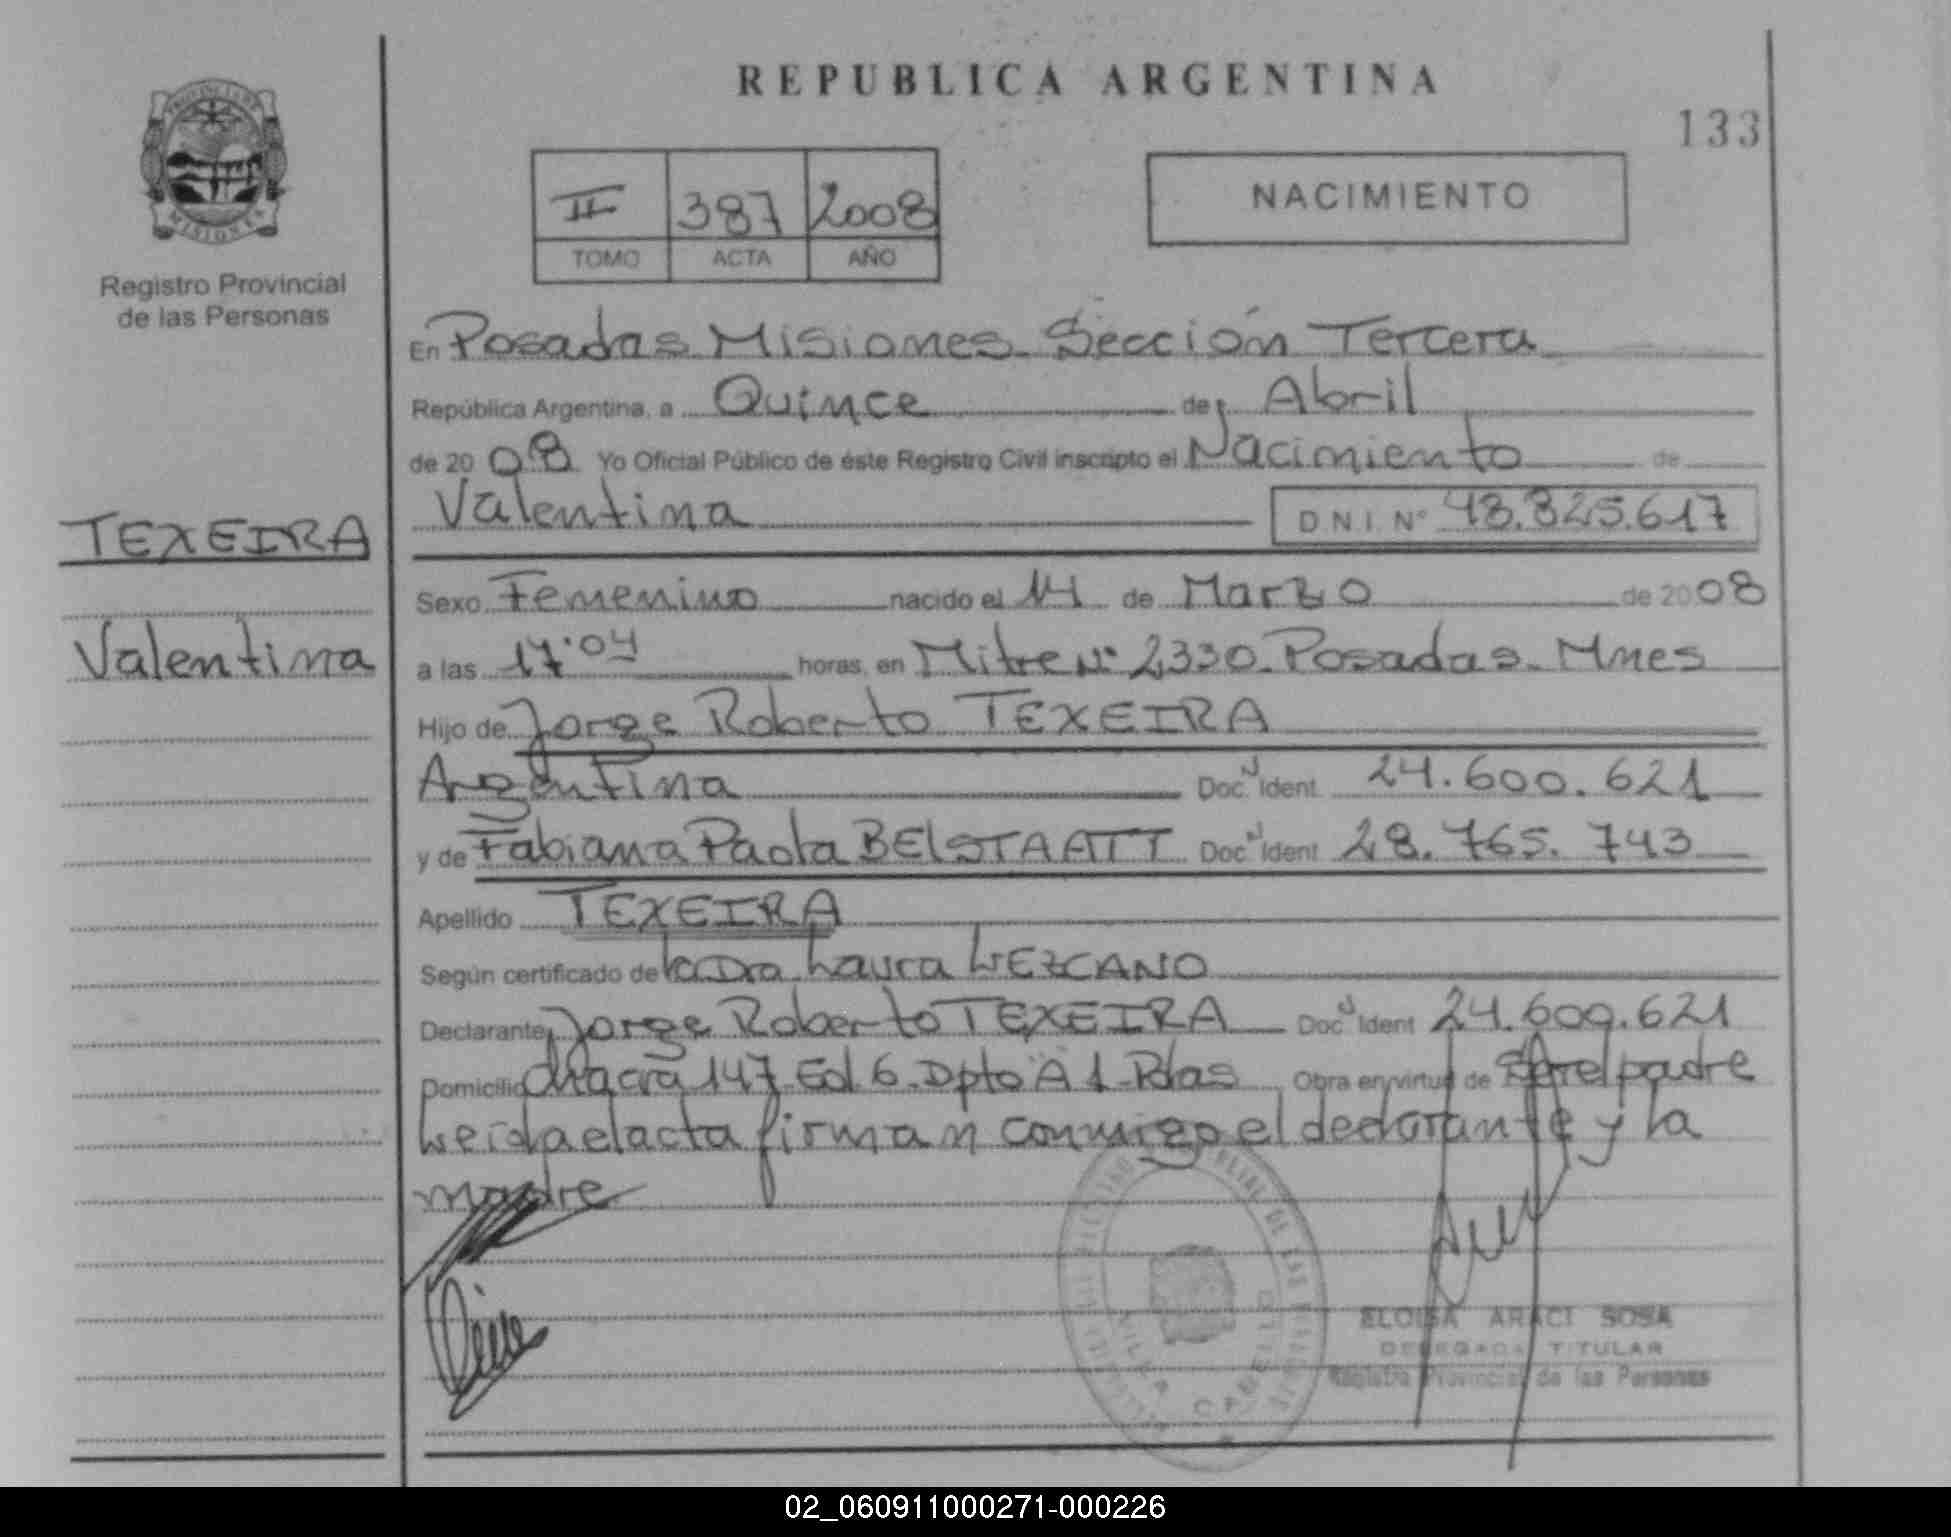 REPUBLICA ARGENTINA
133
II 387 2008
TOMO ACTA AÑO
NACIMIENTO
PROVINCIA DE
MISIONES
Registro Provincial
de las Personas
TEXEIRA
Valentina
En Posadas Misiones Sección Tercera
República Argentina, a Quince de Abril
de 2008 Yo Oficial Público de éste Registro Civil inscripto el Nacimiento de
Valentina D N I Nº 48.825.617
Sexo Femenino nacido el 14 de Marzo de 2008
a las 17:04 horas, en Mitre Nº 2330 Posadas Mnes
Hijo de Jorge Roberto TEXEIRA
Argentina Doc. Ident 24.600.621
y de Fabiana Paola BELSTAATT Doc. Ident 28.765.743
Apellido TEXEIRA
Según certificado de la Dra Laura LEZCANO
Declarante Jorge Roberto TEXEIRA Doc. Ident 24.600.621
Domicilio Chacra 147 Ed 6 Dpto "A" 1 Pdas Obra en virtud de Ser el padre
Leida el acta firman conmigo el declarante y la
madre
VILLA CABELLO
ELOISA ARACI SOSA
DELEGADA TITULAR
Registro Provincial de las Personas
02_060911000271-000226